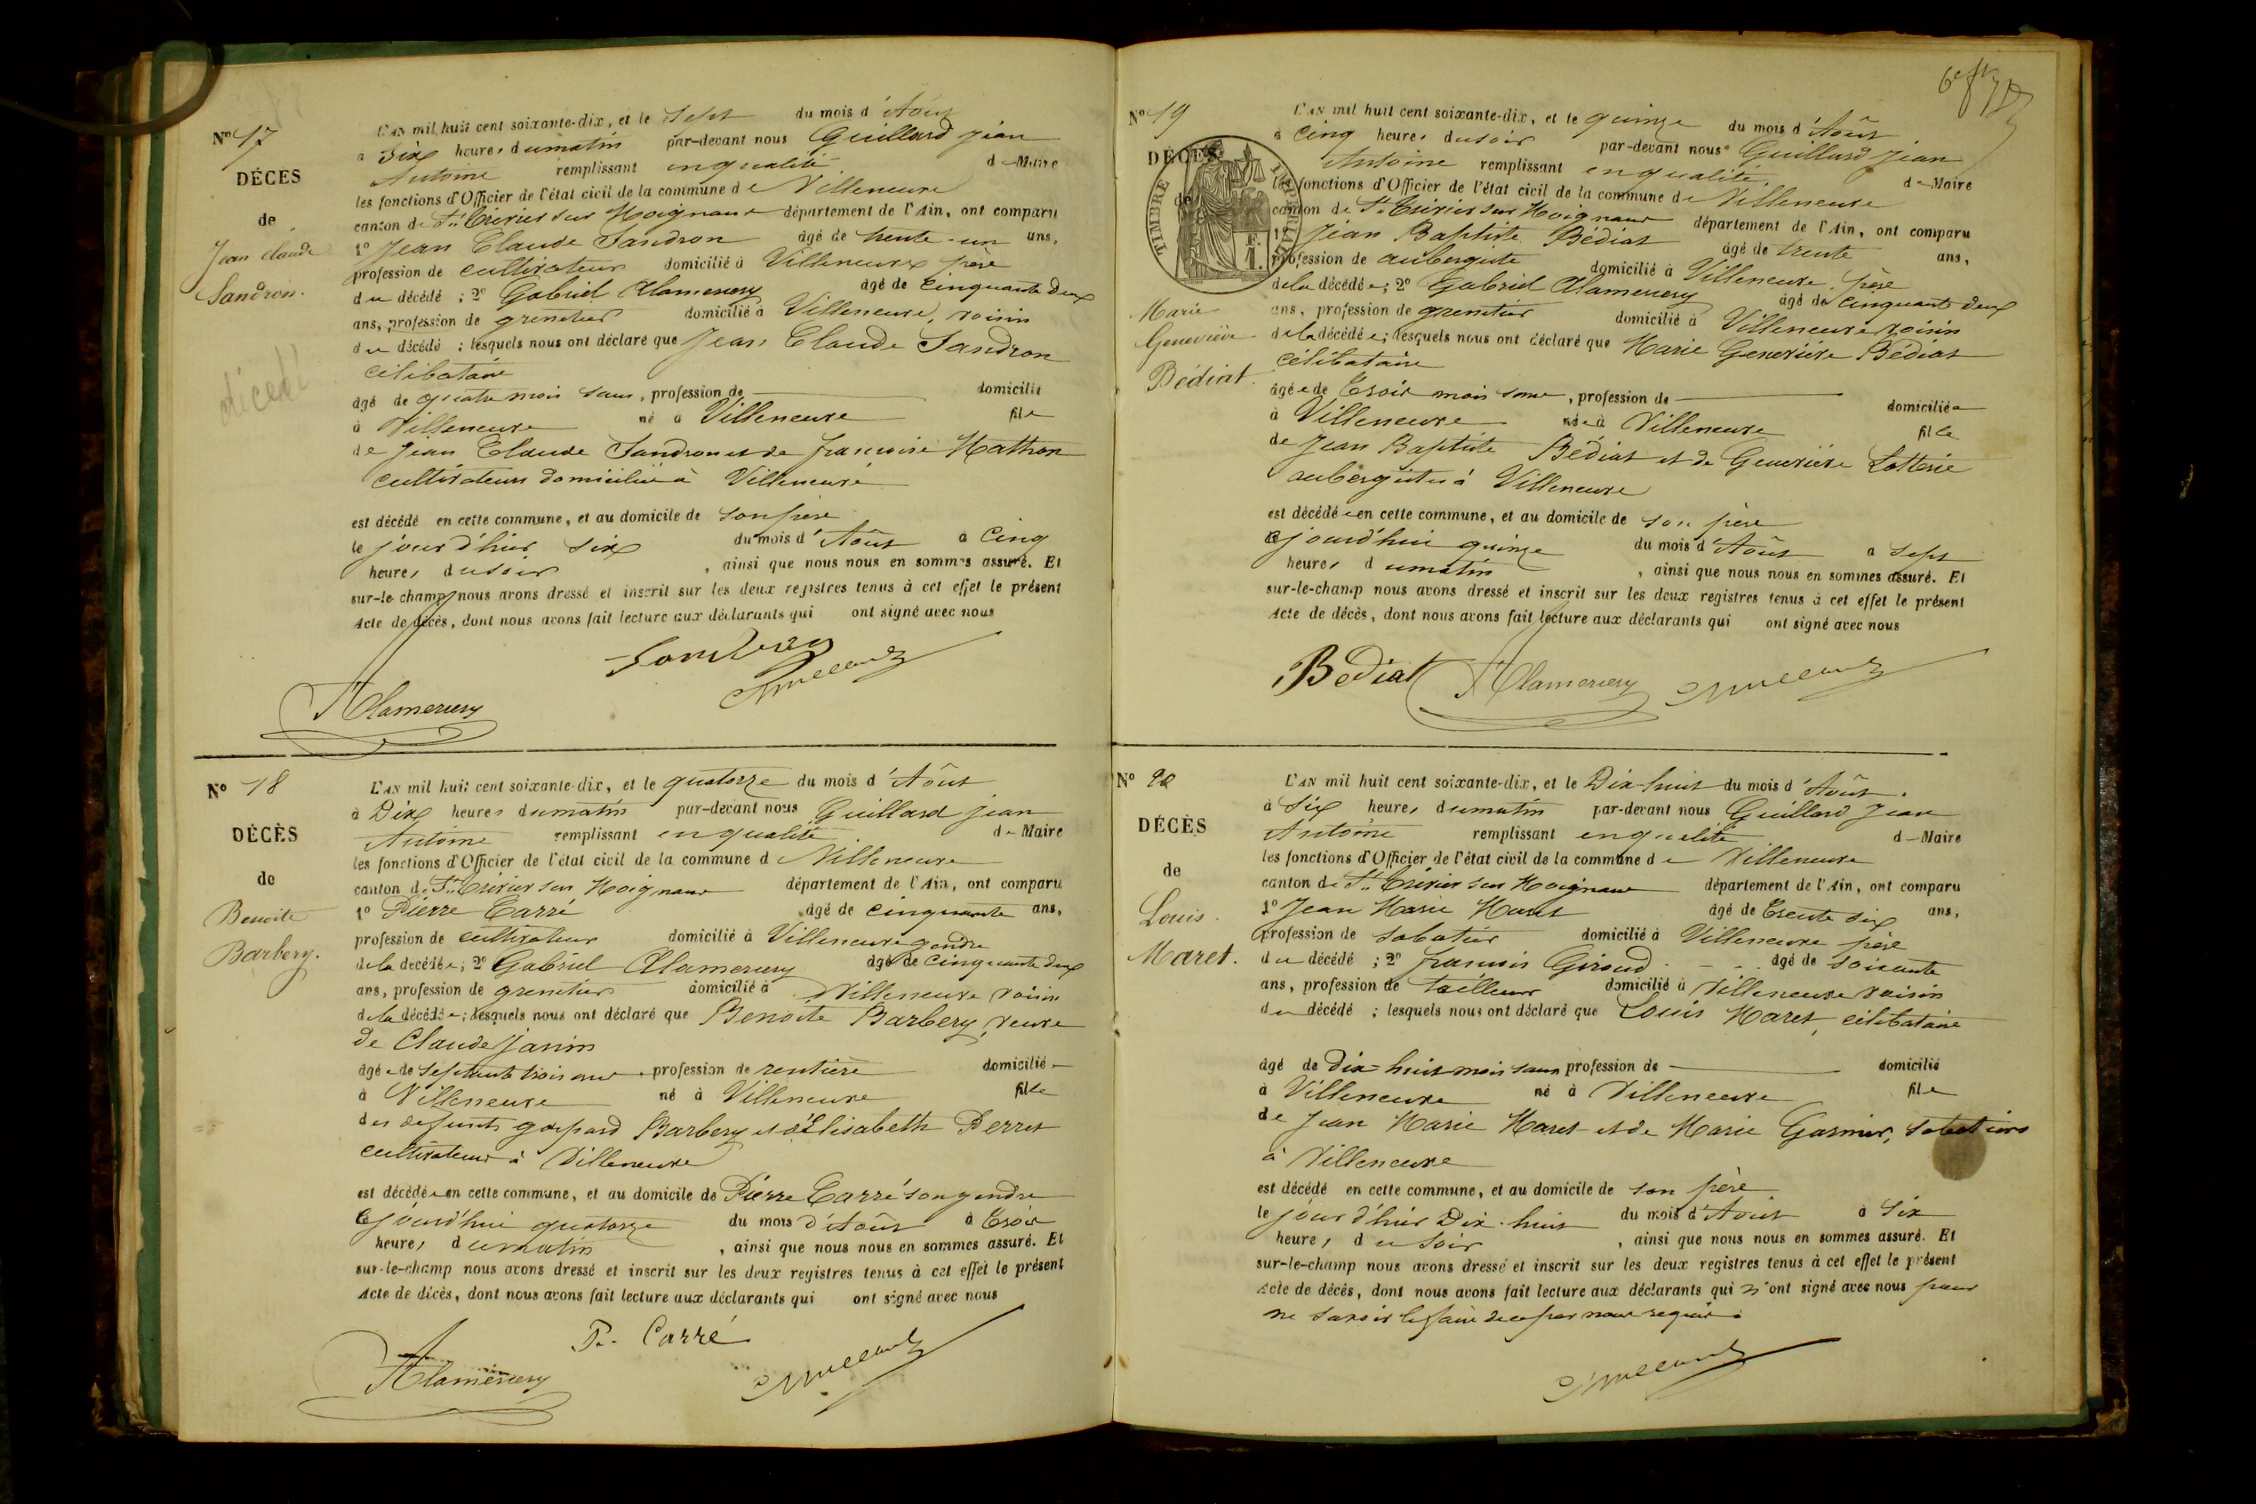 N° 17
DÉCÈS
de
Jean Claude
Sandron.
décédé
L'AN mil huit cent soixante-dix, et le sept du mois d'Août
à six heures du matin par-devant nous Guillard Jean
Antoine remplissant en qualité de Maire
les fonctions d'Officier de l'état civil de la commune de Villeneuve
canton de St. Trivier sur Moignans département de l'Ain, ont comparu
1° Jean Claude Sandron âgé de trente-un ans,
profession de cultivateur domicilié à Villeneuve père
du décédé ; 2° Gabriel Alamercery âgé de cinquante deux
ans, profession de grenetier domicilié à Villeneuve, voisin
du décédé ; lesquels nous ont déclaré que Jean Claude Sandron
célibataire
âgé de quatre mois sans, profession de — domicilié
à Villeneuve né à Villeneuve fils
de Jean Claude Sandron et de françoise Mathon
cultivateurs domiciliés à Villeneuve
est décédé en cette commune, et au domicile de son père
le jour d'hier six du mois d'Août à cinq
heures du soir, ainsi que nous nous en sommes assuré. Et
sur-le-champ nous avons dressé et inscrit sur les deux registres tenus à cet effet le présent
Acte de décès, dont nous avons fait lecture aux déclarants qui ont signé avec nous
Sandron
Alamercery
N° 18
DÉCÈS
de
Benoite
Barbery.
L'AN mil huit cent soixante-dix, et le quatorze du mois d'Août
à Dix heures du matin par-devant nous Guillard Jean
Antoine remplissant en qualité de Maire
les fonctions d'Officier de l'état civil de la commune de Villeneuve
canton de St. Trivier sur Moignans département de l'Ain, ont comparu
1° Pierre Carré âgé de cinquante ans,
profession de cultivateur domicilié à Villeneuve gendre
de la décédée ; 2° Gabriel Alamercery âgé de cinquante deux
ans, profession de grenetier domicilié à Villeneuve voisin
de la décédée ; lesquels nous ont déclaré que Benoite Barbery, veuve
de Claude Janin
âgée de septante trois ans, profession de rentière domiciliée
à Villeneuve né à Villeneuve fille
des défunts gaspard Barbery et d'Elisabeth Perret
cultivateurs à Villeneuve
est décédée en cette commune, et au domicile de Pierre Carré son gendre
ce jourd'hui quatorze du mois d'Août à trois
heures du matin, ainsi que nous nous en sommes assuré. Et
sur-le-champ nous avons dressé et inscrit sur les deux registres tenus à cet effet le présent
Acte de décès, dont nous avons fait lecture aux déclarants qui ont signé avec nous
P. Carré
Alamercery
N° 19
DÉCÈS
de
TIMBRE IMPÉRIAL
1 F.
Marie
Geneviève
Bédiat.
L'AN mil huit cent soixante-dix, et le quinze du mois d'Août
à cinq heures du soir par-devant nous Guillard Jean
Antoine remplissant en qualité de Maire
les fonctions d'Officier de l'état civil de la commune de Villeneuve
canton de St. Trivier sur Moignans département de l'Ain, ont comparu
1° Jean Baptiste Bédiat âgé de trente ans,
profession de aubergiste domicilié à Villeneuve, père
de la décédée ; 2° Gabriel Alamercery âgé de cinquante deux
ans, profession de grenetier domicilié à Villeneuve voisin
de la décédée ; lesquels nous ont déclaré que Marie Geneviève Bédiat
célibataire
âgée de trois mois sans, profession de — domiciliée
à Villeneuve née à Villeneuve fille
de Jean Baptiste Bédiat et de Geneviève Lotterie
aubergistes à Villeneuve
est décédée en cette commune, et au domicile de son père
ce jourd'hui quinze du mois d'Août à sept
heures du matin, ainsi que nous nous en sommes assuré. Et
sur-le-champ nous avons dressé et inscrit sur les deux registres tenus à cet effet le présent
Acte de décès, dont nous avons fait lecture aux déclarants qui ont signé avec nous
Bediat Alamercery
N° 20
DÉCÈS
de
Louis
Maret.
L'AN mil huit cent soixante-dix, et le Dix-huit du mois d'Août.
à six heures du matin par-devant nous Guillard Jean
Antoine remplissant en qualité de Maire
les fonctions d'Officier de l'état civil de la commune de Villeneuve
canton de St. Trivier sur Moignans département de l'Ain, ont comparu
1° Jean Marie Maret âgé de trente six ans,
profession de sabotier domicilié à Villeneuve père
du décédé ; 2° francois Giroud âgé de soixante
ans, profession de tailleur domicilié à Villeneuve voisin
du décédé ; lesquels nous ont déclaré que Louis Maret, célibataire
âgé de Dix-huit mois sans profession de — domicilié
à Villeneuve né à Villeneuve fils
de Jean Marie Maret et de Marie Garnier, sabotiers
à Villeneuve
est décédé en cette commune, et au domicile de son père
le jour d'hier Dix-huit du mois d'Août à six
heures du soir, ainsi que nous nous en sommes assuré. Et
sur-le-champ nous avons dressé et inscrit sur les deux registres tenus à cet effet le présent
Acte de décès, dont nous avons fait lecture aux déclarants qui n'ont signé avec nous pour
ne savoir le faire de ce par nous requis.